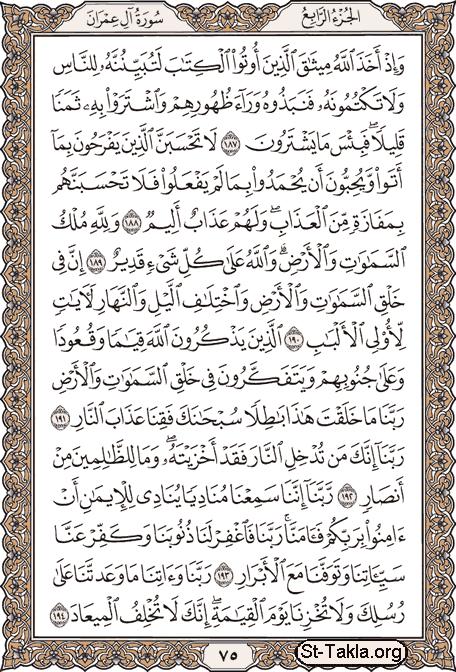 سُورَةُ آلِ عِمْرَانَ
الجُزْءُ الرَّابِعُ
وَإِذْ أَخَذَ ٱللَّهُ مِيثَٰقَ ٱلَّذِينَ أُوتُوا۟ ٱلْكِتَٰبَ لَتُبَيِّنُنَّهُۥ لِلنَّاسِ
وَلَا تَكْتُمُونَهُۥ فَنَبَذُوهُ وَرَآءَ ظُهُورِهِمْ وَٱشْتَرَوْا۟ بِهِۦ ثَمَنًا
قَلِيلًا ۖ فَبِئْسَ مَا يَشْتَرُونَ ١٨٧ لَا تَحْسَبَنَّ ٱلَّذِينَ يَفْرَحُونَ بِمَآ
أَتَوا۟ وَّيُحِبُّونَ أَن يُحْمَدُوا۟ بِمَا لَمْ يَفْعَلُوا۟ فَلَا تَحْسَبَنَّهُم
بِمَفَازَةٍ مِّنَ ٱلْعَذَابِ ۖ وَلَهُمْ عَذَابٌ أَلِيمٌ ١٨٨ وَلِلَّهِ مُلْكُ
ٱلسَّمَٰوَٰتِ وَٱلْأَرْضِ ۗ وَٱللَّهُ عَلَىٰ كُلِّ شَىْءٍ قَدِيرٌ ١٨٩ إِنَّ فِى
خَلْقِ ٱلسَّمَٰوَٰتِ وَٱلْأَرْضِ وَٱخْتِلَٰفِ ٱلَّيْلِ وَٱلنَّهَارِ لَءَايَٰتٍ
لِّأُو۟لِى ٱلْأَلْبَٰبِ ١٩٠ ٱلَّذِينَ يَذْكُرُونَ ٱللَّهَ قِيَٰمًا وَقُعُودًا
وَعَلَىٰ جُنُوبِهِمْ وَيَتَفَكَّرُونَ فِى خَلْقِ ٱلسَّمَٰوَٰتِ وَٱلْأَرْضِ
رَبَّنَا مَا خَلَقْتَ هَٰذَا بَٰطِلًا سُبْحَٰنَكَ فَقِنَا عَذَابَ ٱلنَّارِ ١٩١
رَبَّنَآ إِنَّكَ مَن تُدْخِلِ ٱلنَّارَ فَقَدْ أَخْزَيْتَهُۥ ۖ وَمَا لِلظَّٰلِمِينَ مِنْ
أَنصَارٍ ١٩٢ رَّبَّنَآ إِنَّنَا سَمِعْنَا مُنَادِيًا يُنَادِى لِلْإِيمَٰنِ أَنْ
ءَامِنُوا۟ بِرَبِّكُمْ فَـَٔامَنَّا ۚ رَبَّنَا فَٱغْفِرْ لَنَا ذُنُوبَنَا وَكَفِّرْ عَنَّا
سَيِّـَٔاتِنَا وَتَوَفَّنَا مَعَ ٱلْأَبْرَارِ ١٩٣ رَبَّنَا وَءَاتِنَا مَا وَعَدتَّنَا عَلَىٰ
رُسُلِكَ وَلَا تُخْزِنَا يَوْمَ ٱلْقِيَٰمَةِ ۗ إِنَّكَ لَا تُخْلِفُ ٱلْمِيعَادَ ١٩٤
٧٥
St-Takla.org